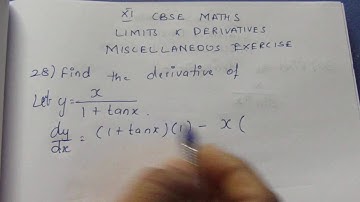 XI CBSE MATHS
LIMITS & DERIVATIVES
MISCELLANEOUS EXERCISE
28) Find the derivative of
Let y = x / (1 + tanx) .
dy/dx = (1 + tanx)(1) - x (